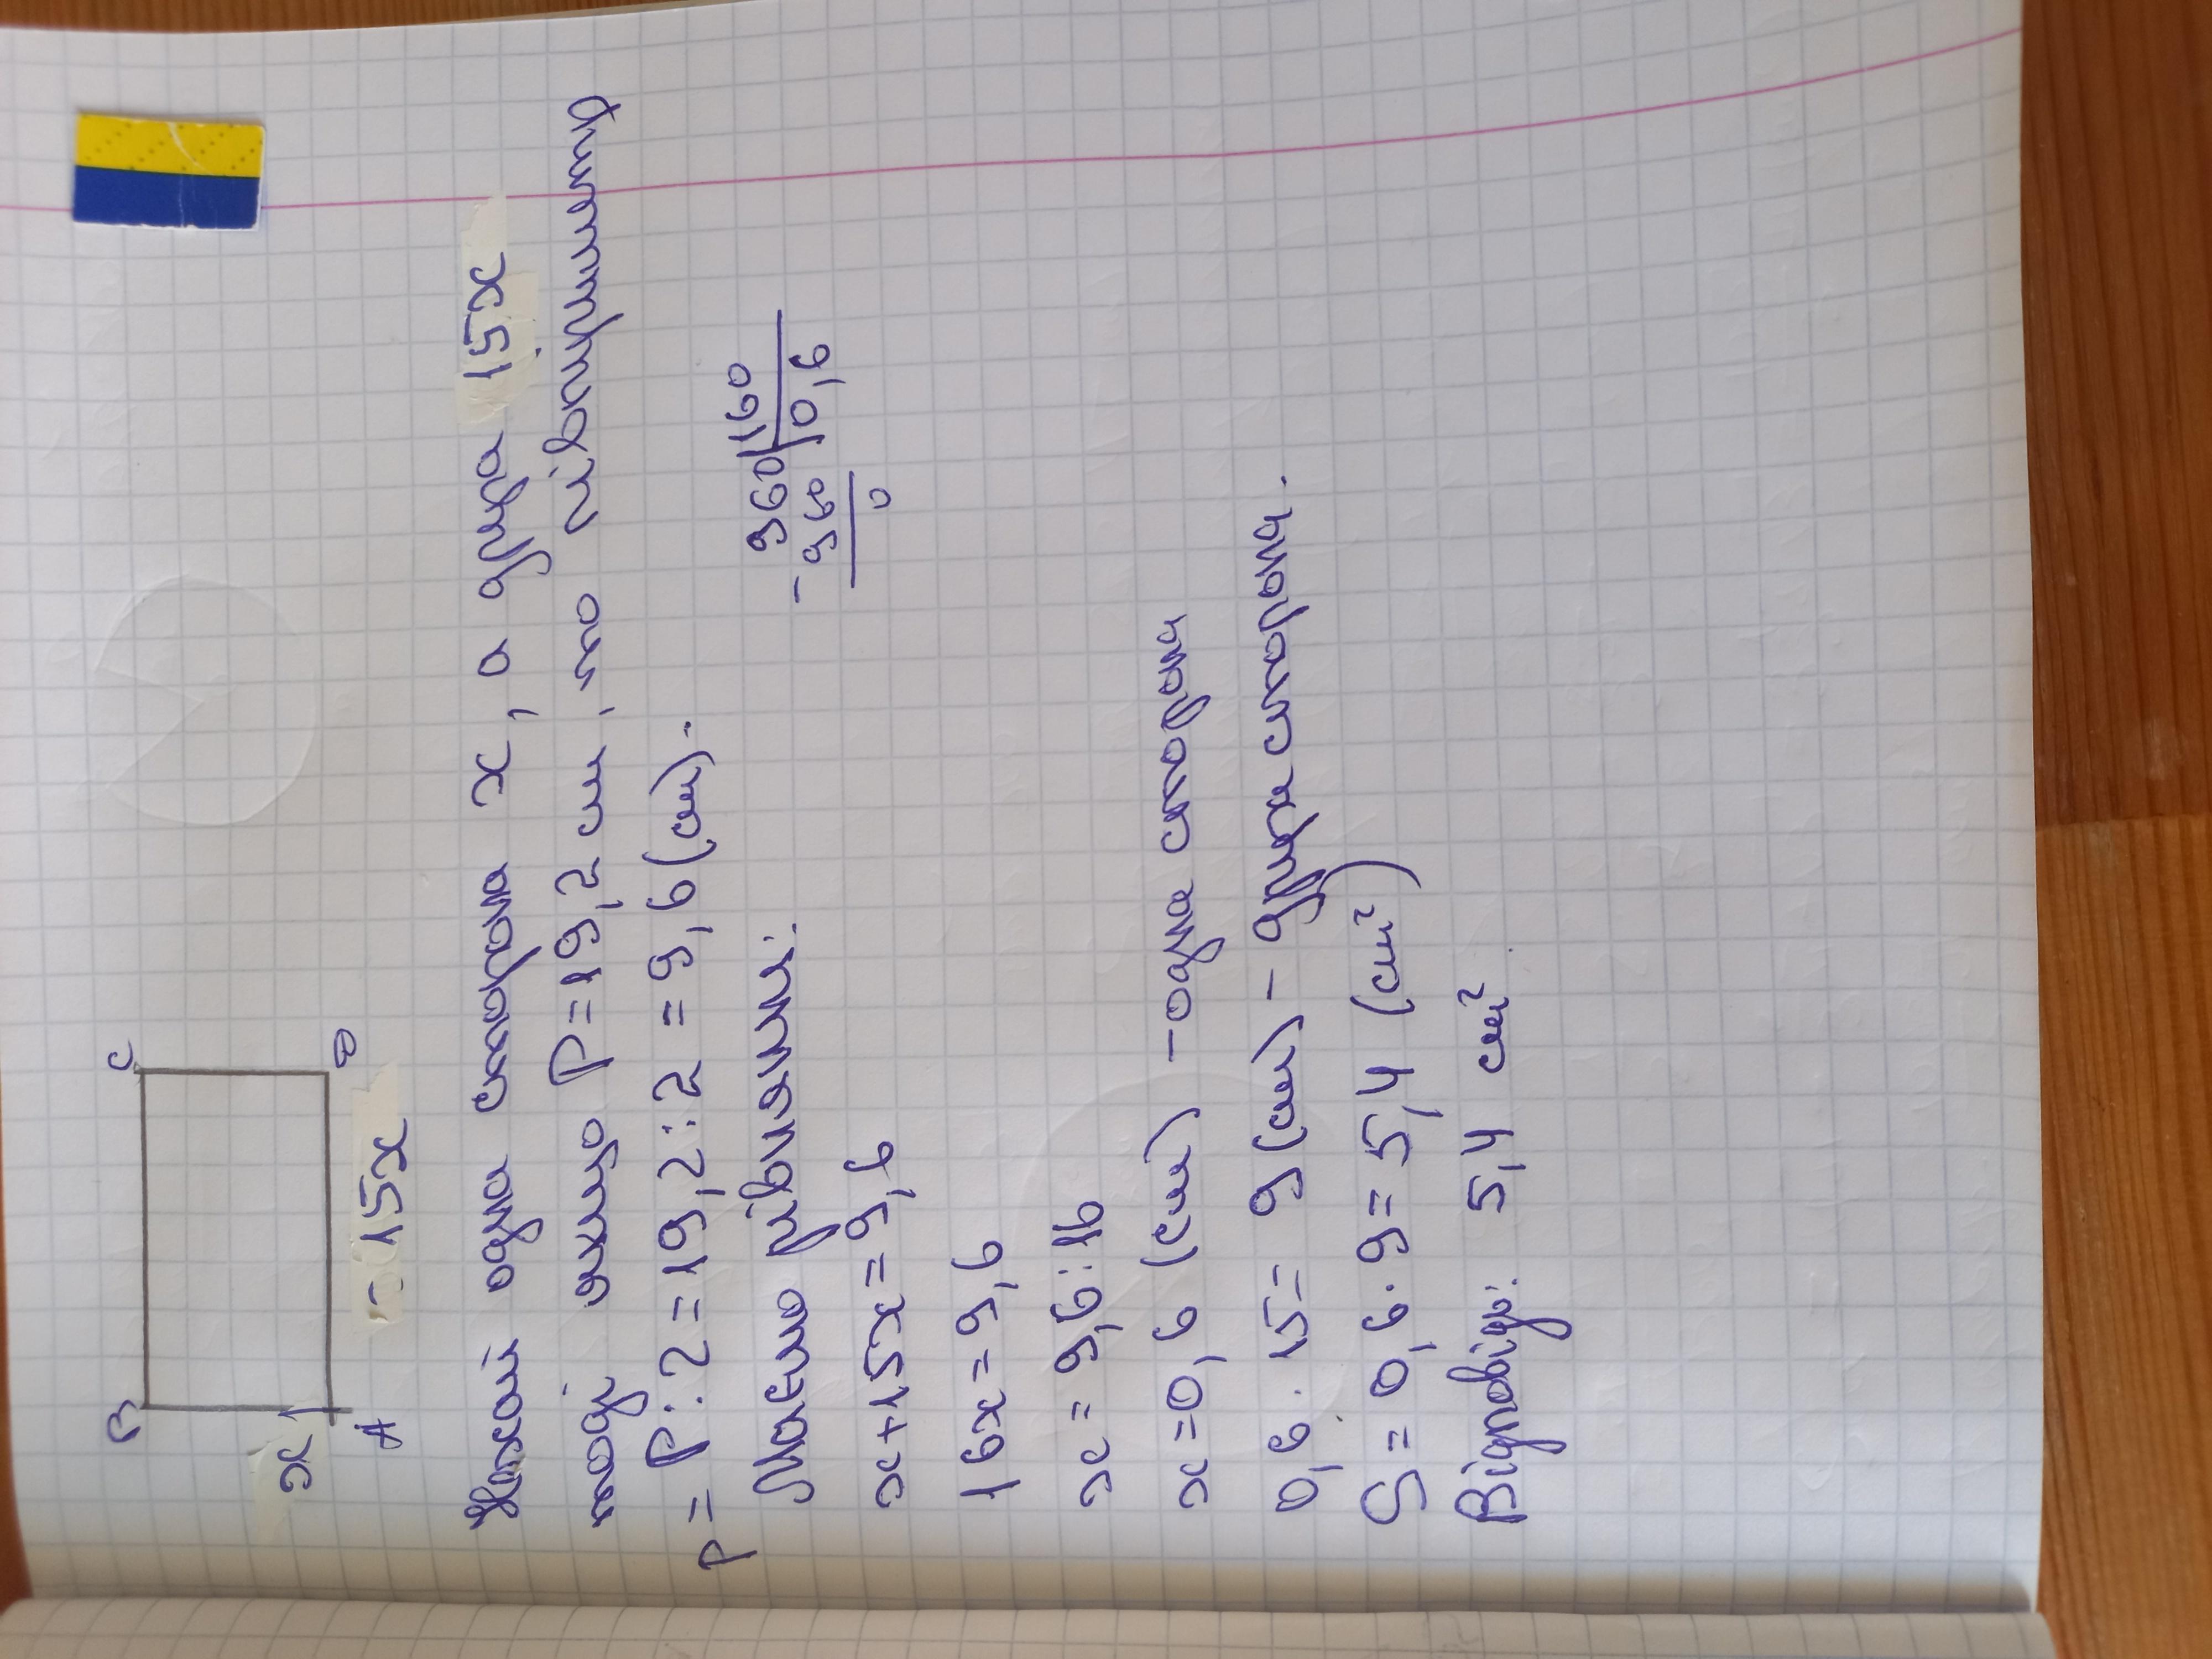 B C
x
A D
- 15x
Нехай одна сторона x, а друга 15x
тоді якщо P=19,2 см, то півпериметр
p = P:2=19,2:2 = 9,6(см).
Маємо рівняння:
x+15x=9,6
16x=9,6
x = 9,6:16
x=0,6 (см) - одна сторона
0,6 · 15= 9(см) - друга сторона.
S=0,6·9=5,4 (см²)
Відповідь: 5,4 см²
960 160
- 960 0,6
0